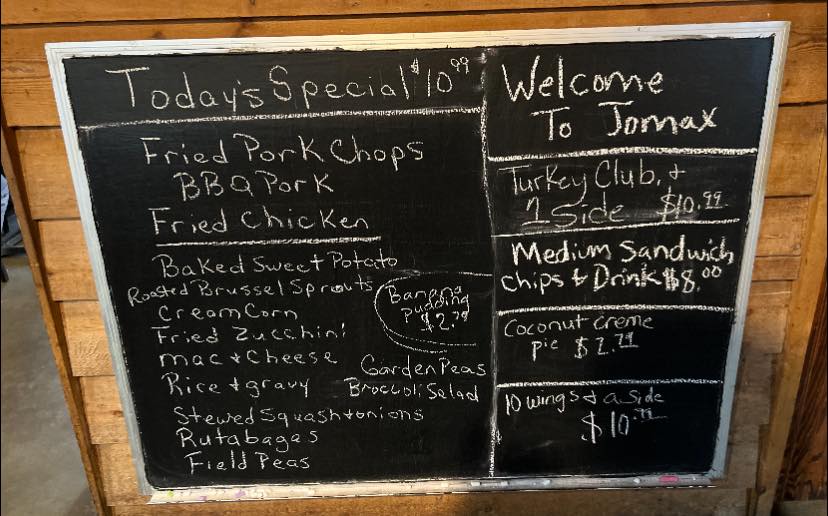 Today's Special $10.99
Fried Pork Chops
BBQ Pork
Fried Chicken
Baked Sweet Potato
Roasted Brussel Sprouts
Cream Corn
Fried Zucchini
Mac & Cheese
Rice & gravy
Stewed Squash & onions
Rutabagas
Field Peas
Banana
Pudding
$2.79
Garden Peas
Broccoli Salad
Welcome
To Jomax
Turkey Club, &
1 Side $10.99
Medium Sandwich
chips & Drink $8.00
Coconut creme
pie $2.79
10 wings & a side
$10.99